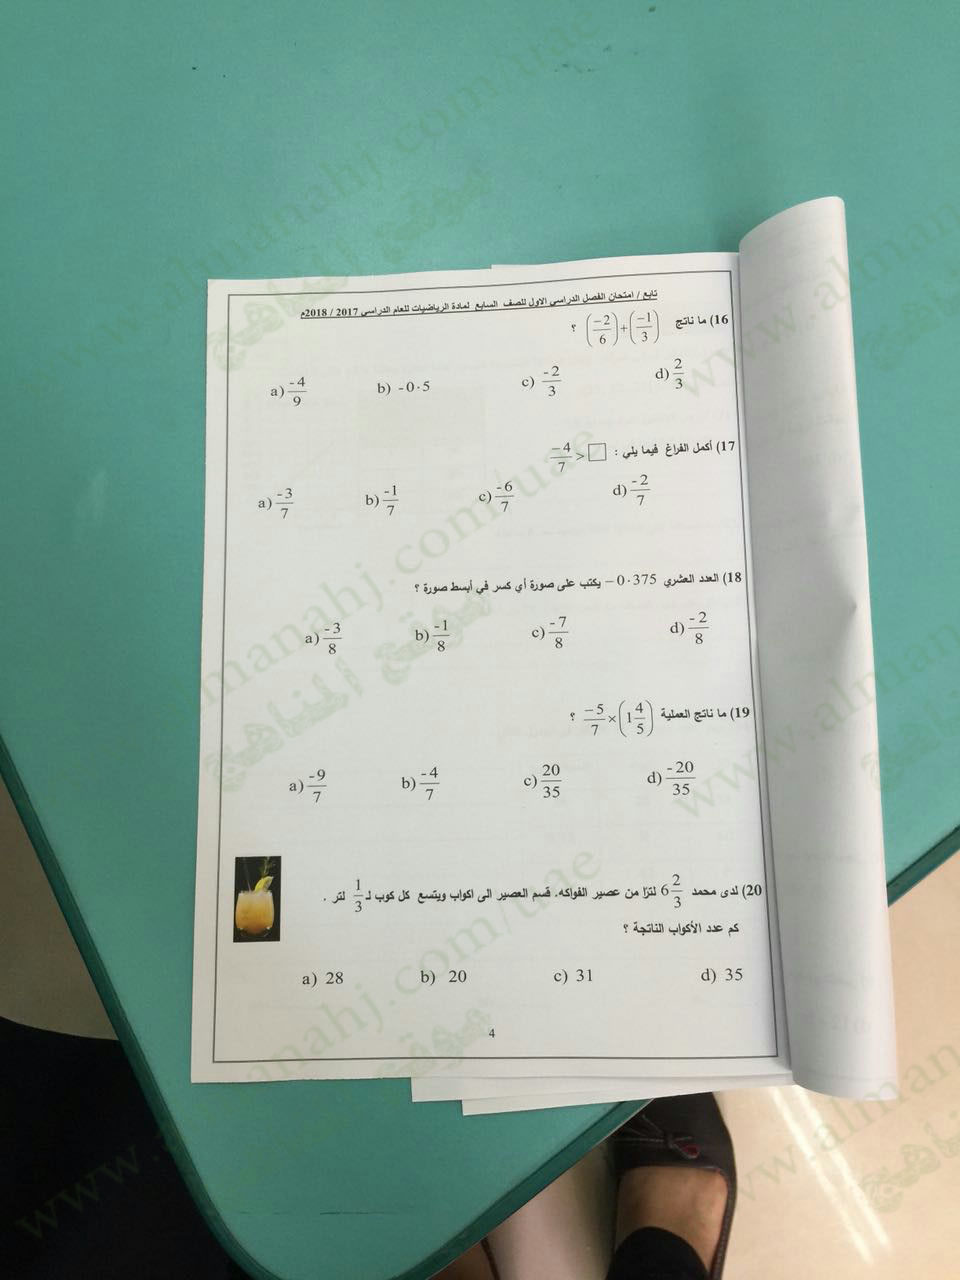 تابع / امتحان الفصل الدراسي الاول للصف السابع لمادة الرياضيات للعام الدراسي 2017 / 2018م
16) ما ناتج (-2/6) + (-1/3) ؟
a) -4/9 b) -0·5 c) -2/3 d) 2/3
17) أكمل الفراغ فيما يلي : -4/7 > □
a) -3/7 b) -1/7 c) -6/7 d) -2/7
18) العدد العشري -0·375 يكتب على صورة أي كسر في أبسط صورة ؟
a) -3/8 b) -1/8 c) -7/8 d) -2/8
19) ما ناتج العملية -5/7 × (1 4/5) ؟
a) -9/7 b) -4/7 c) 20/35 d) -20/35
20) لدى محمد 6 2/3 لترًا من عصير الفواكه. قسم العصير الى اكواب ويتسع كل كوب لـ 1/3 لتر .
كم عدد الأكواب الناتجة ؟
a) 28 b) 20 c) 31 d) 35
4
www.almanahj.com/uae
موقع المناهج